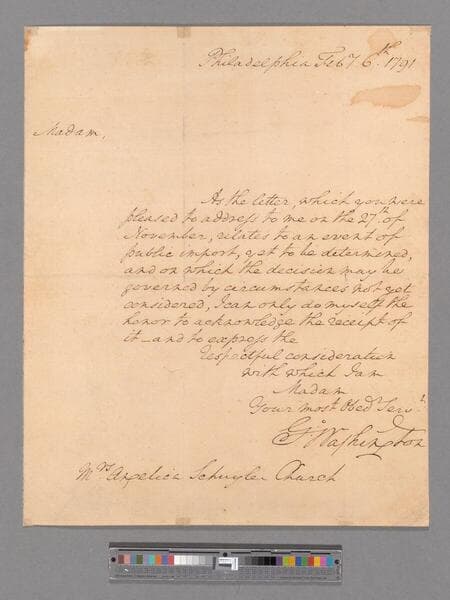 Philadelphia Feb.y 6.th 1791
Madam,
As the letter, which you were
pleased to address to me on the 27.th of
November, relates to an event of
public import, yet to be determined,
and on which the decision may be
governed by circumstances not yet
considered, I can only do myself the
honor to acknowledge the receipt of
it_and to express the
respectful consideration
with which I am
Madam
Your most Obed.t Serv.t
G.o Washington
M.rs Angelica Schuyler Church